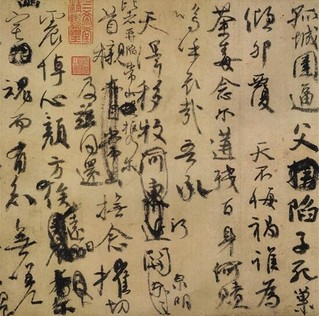 孤城圍逼父陷子死巢
傾卵覆天不悔禍誰為
荼毒念爾遘殘百身何贖
嗚呼哀哉吾承
泉明
天澤移牧河關
比者再陷常山攜爾
首櫬亦自常山撫念摧切
及茲同還
震悼心顏方俟
遠日
宅魂而有知無嗟